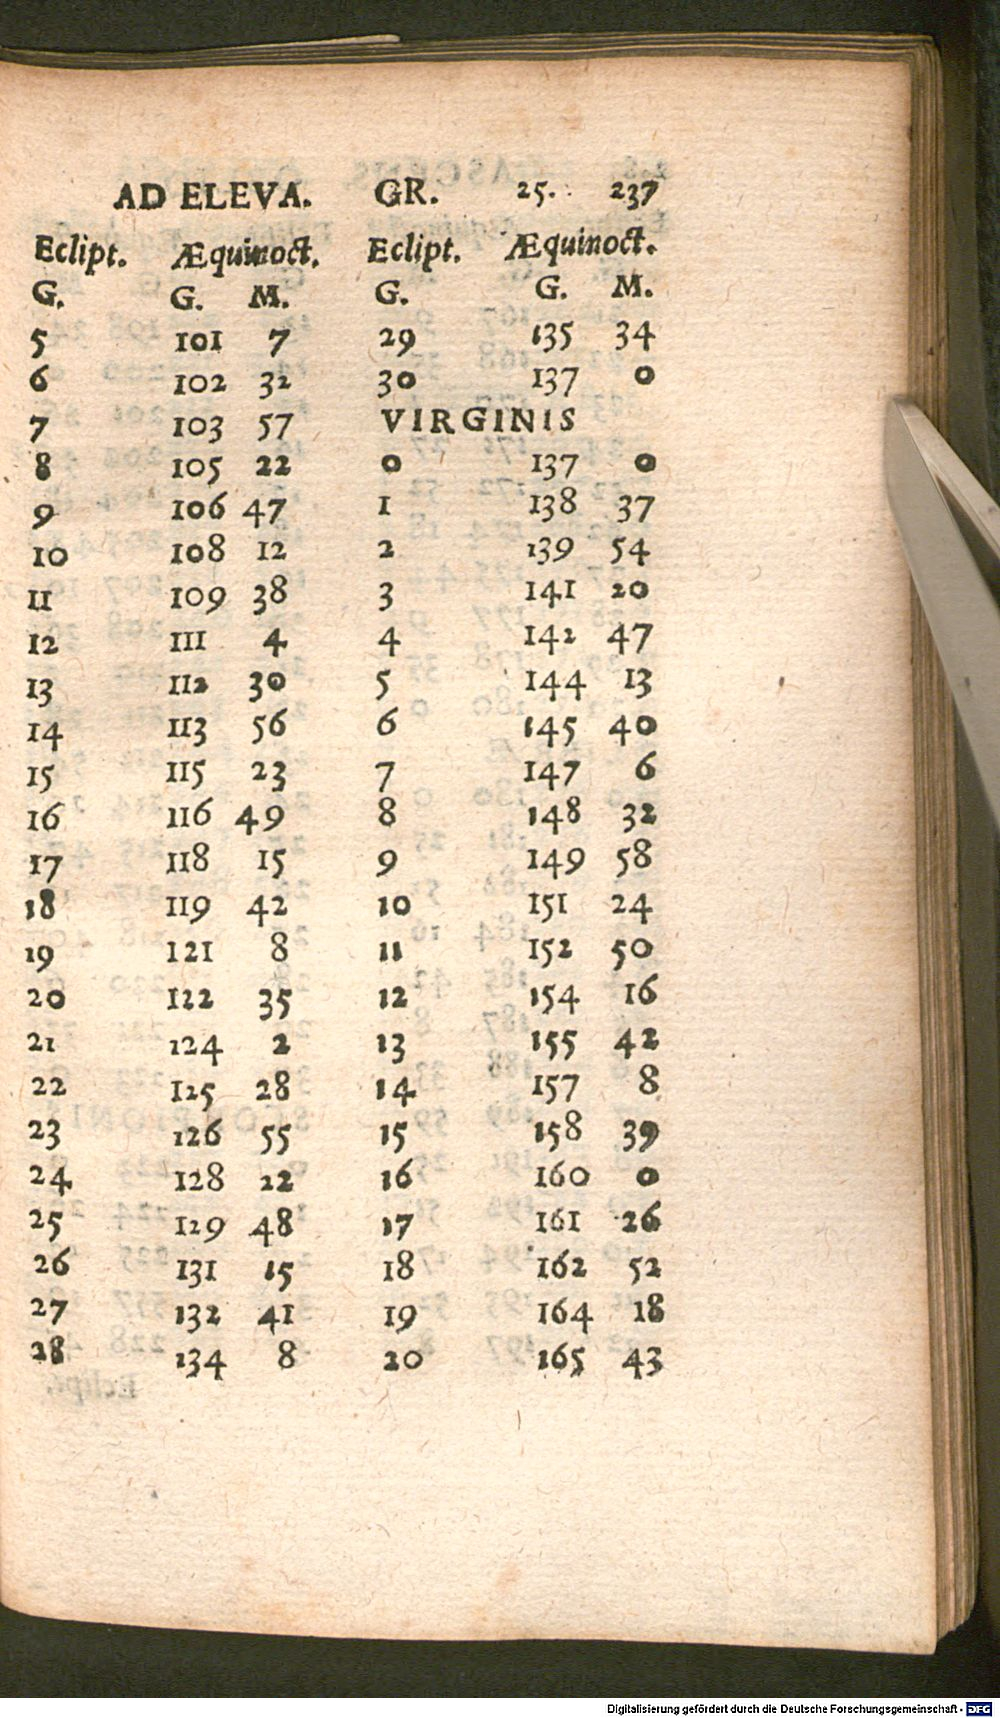 AD ELEVA. GR. 25. 237
Eclipt. Æquinoct. Eclipt. Æquinoct.
G. G. M. G. G. M.
5 101 7 29 135 34
6 102 32 30 137 0
7 103 57 VIRGINIS
8 105 22 0 137 0
9 106 47 1 138 37
10 108 12 2 139 54
11 109 38 3 141 20
12 111 4 4 142 47
13 112 30 5 144 13
14 113 56 6 145 40
15 115 23 7 147 6
16 116 49 8 148 32
17 118 15 9 149 58
18 119 42 10 151 24
19 121 8 11 152 50
20 122 35 12 154 16
21 124 2 13 155 42
22 125 28 14 157 8
23 126 55 15 158 39
24 128 22 16 160 0
25 129 48 17 161 26
26 131 15 18 162 52
27 132 41 19 164 18
28 134 8 20 165 43
Digitalisierung gefördert durch die Deutsche Forschungsgemeinschaft - DFG